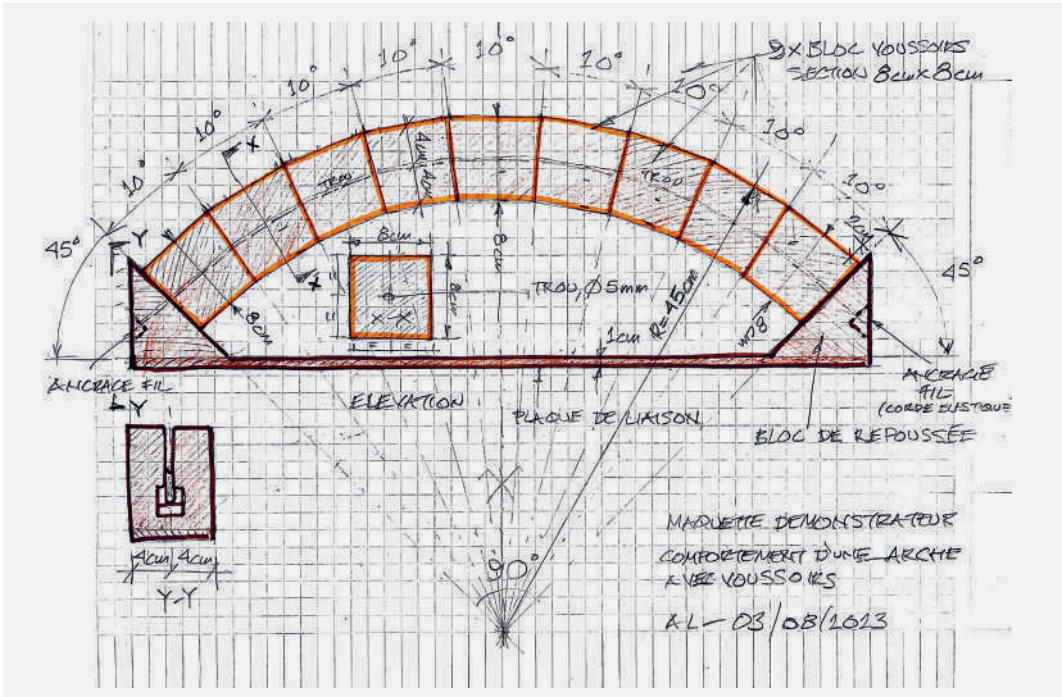 10°
10°
10°
10°
10°
10°
10°
10°
10°
9x BLOC VOUSSOIRS
SECTION 8cm x 8cm
X
TROU
4cm 4cm
TROU
45°
Y
8cm
8cm
8cm
X
8cm
X-X
TROU, Ø5mm
R=45cm
8cm
8cm
45°
1cm
ANCRAGE FIL
Y
ELEVATION
PLAQUE DE LIAISON
ANCRAGE
FIL
(CORDE ELASTIQUE
BLOC DE REPOUSSÉE
4cm 4cm
Y-Y
90°
MAQUETTE DEMONSTRATEUR
COMPORTEMENT D'UNE ARCHE
AVEC VOUSSOIRS
AL - 03/08/2023